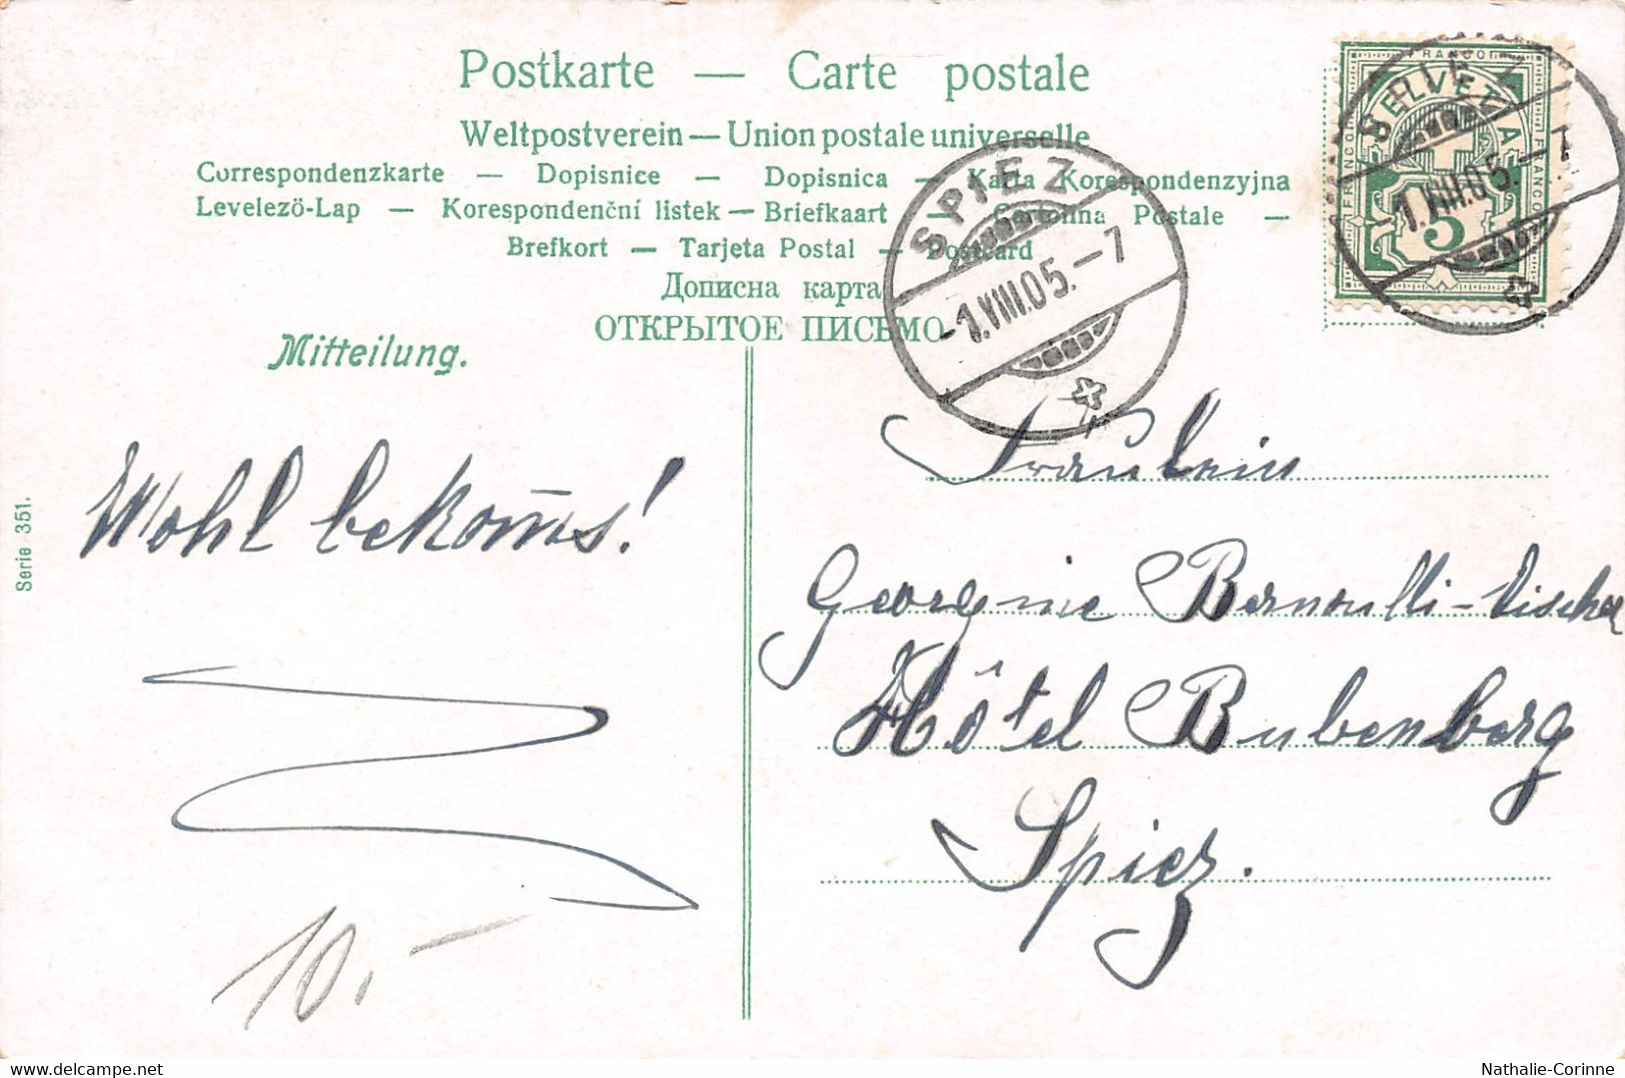 Postkarte — Carte postale
Weltpostverein — Union postale universelle
Correspondenzkarte — Dopisnice — Dopisnica — Karta Korespondenzyjna
Levelező-Lap — Korespondenční listek — Briefkaart — Cartolina Postale —
Brefkort — Tarjeta Postal — Postcard
Дописна карта
ОТКРЫТОЕ ПИСЬМО
FRANCO
HELVETIA
FRANCO
FRANCO
5
-1.VIII.05.-7
SPIEZ
-1.VIII.05.-7
Mitteilung.
Serie 351.
Wohl bekom̄s!
10.-
Fräulein
Georgine Bernoulli-Vischer
Hôtel Bubenberg
Spiez.
delcampe.net
Nathalie-Corinne